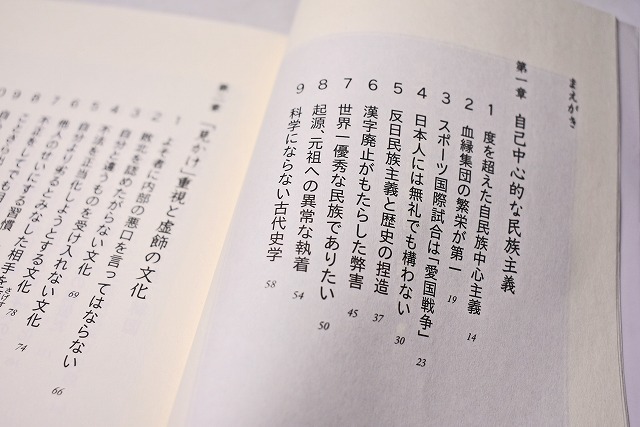 まえがき
第一章 自己中心的な民族主義
1 度を超えた自民族中心主義 14
2 血縁集団の繁栄が第一 19
3 スポーツ国際試合は「愛国戦争」 23
4 日本人には無礼でも構わない 30
5 反日民族主義と歴史の捏造 37
6 漢字廃止がもたらした弊害 45
7 世界一優秀な民族でありたい 50
8 起源、元祖への異常な執着 54
9 科学にならない古代史学 58
「見かけ」重視と虚飾の文化
1 よそ者に内部の悪口を言ってはならない 66
2 敗北を認めたがらない文化 69
3 自分と違うものを受け入れない文化 74
4 不正を正当化しようとする文化 78
5 自分より劣るとみなした相手を
6 他人のせいにする文化
7 不正を
8
9